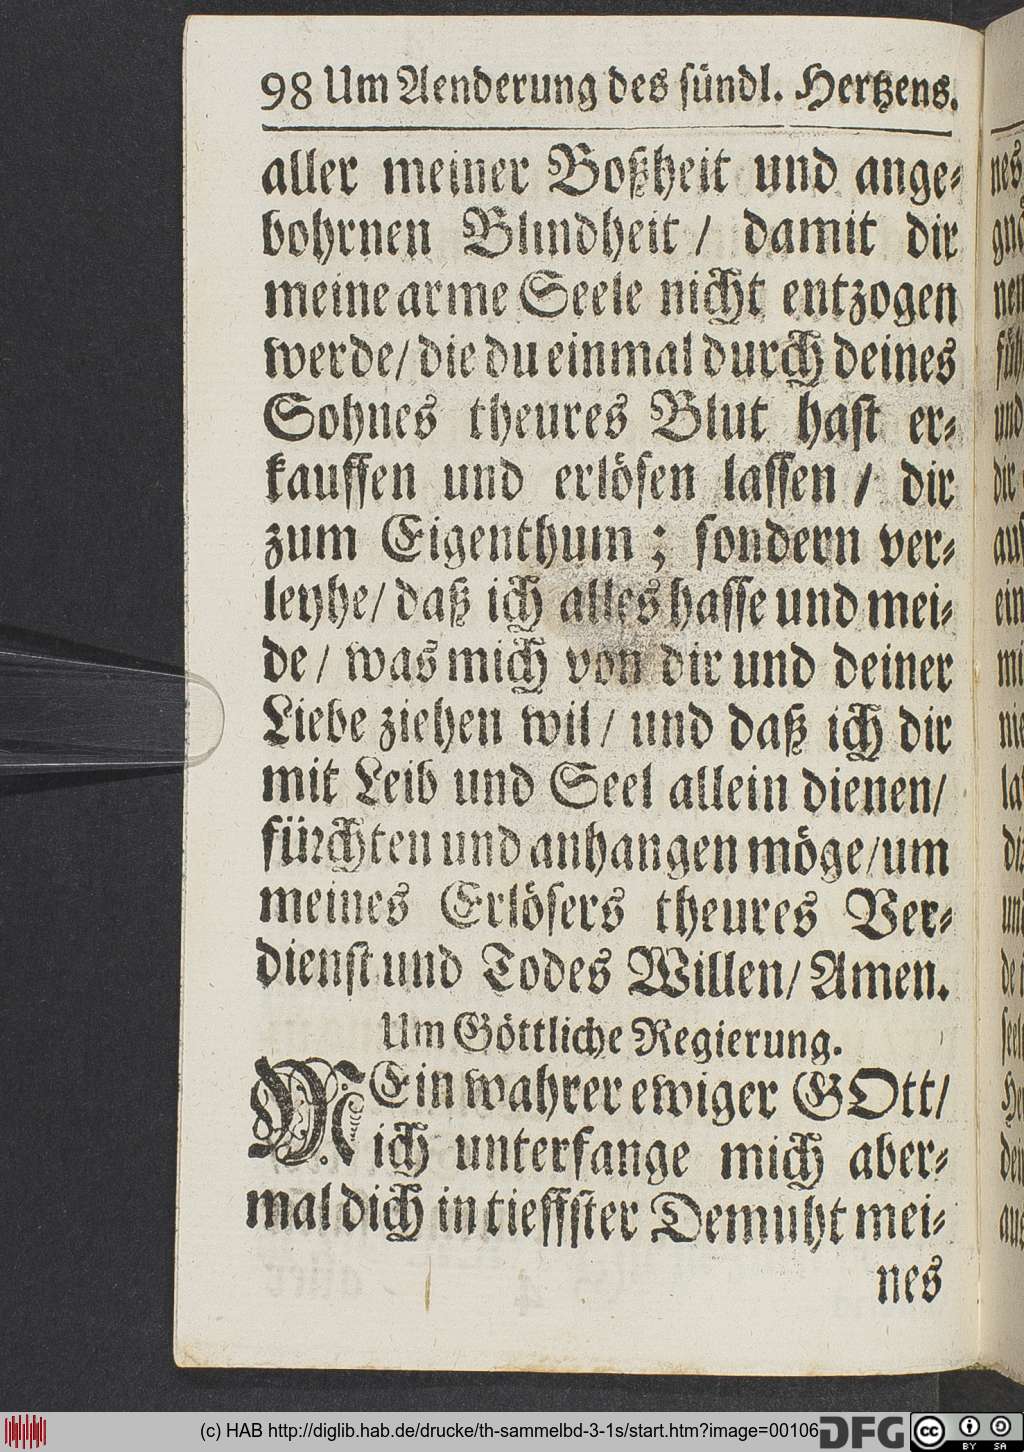 98 Um Aenderung des sündl. Hertzens.
aller meiner Boßheit und ange-
bohrnen Blindheit / damit dir
meine arme Seele nicht entzogen
werde/ die du einmal durch deines
Sohnes theures Blut hast er-
kauffen und erlösen lassen / dir
zum Eigenthum ; sondern ver-
leyhe/ daß ich alles hasse und mei-
de/ was mich von dir und deiner
Liebe ziehen wil/ und daß ich dir
mit Leib und Seel allein dienen/
fürchten und anhangen möge/um
meines Erlösers theures Ver-
dienst und Todes Willen/ Amen.
Um Göttliche Regierung.
MEin wahrer ewiger GOtt/
ich unterfange mich aber-
mal dich in tieffster Demuht mei-
nes
(c) HAB http://diglib.hab.de/drucke/th-sammelbd-3-1s/start.htm?image=00106
DFG
cc BY SA